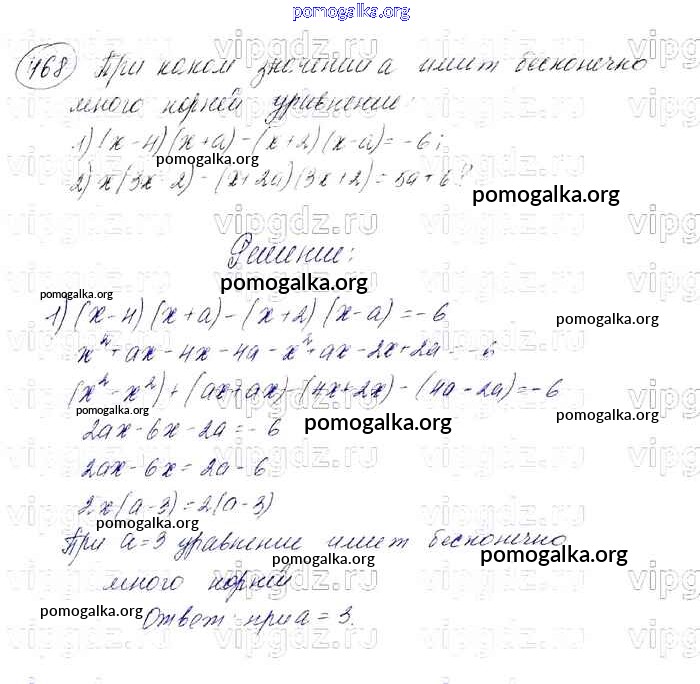 pomogalka.org
468 При каком значении а имеет бесконечно
много корней уравнение:
1) (x-4)(x+a)-(x+2)(x-a)=-6;
pomogalka.org
2) x(3x-2)-(x+2a)(3x+2)=5a+6?
pomogalka.org
Решение:
pomogalka.org
pomogalka.org
1) (x-4)(x+a)-(x+2)(x-a)=-6
pomogalka.org
x²+ax-4x-4a-x²+ax-2x+2a=-6
(x²-x²)+(ax+ax)-(4x+2x)-(4a-2a)=-6
pomogalka.org
pomogalka.org
2ax-6x-2a=-6
pomogalka.org
2ax-6x=2a-6
2x(a-3)=2(a-3)
pomogalka.org
При a=3 уравнение имеет бесконечно
pomogalka.org
pomogalka.org
много корней
pomogalka.org
Ответ: при a=3.